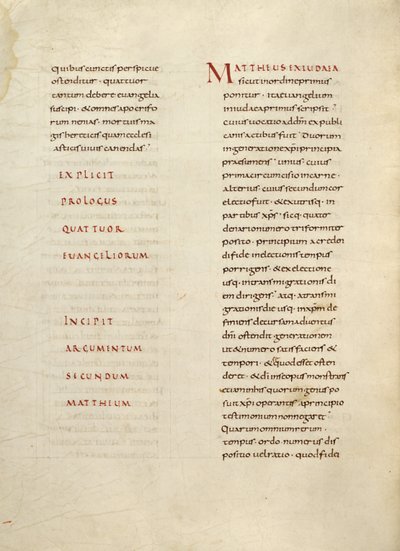 quibus cunctis perspicue
ostenditur · quattuor
tantum debere euangelia
suscipi · & omnes apocrifo
rum nenias · mortuis ma
gis hereticis quam ecclesi
asticis uiuis canendas ·
EXPLICIT
PROLOGUS
QUATTUOR
EUANGELIORUM
INCIPIT
ARGUMENTUM
SECUNDUM
MATTHEUM
MATTHEUS EX IUDAEA
sicut in ordine primus
ponitur · ita euangelium
in iudaea primus scripsit
cuius uocatio ad dm̄ ex publi
canis actibus fuit · Duorum
in generatione xp̄i principia
praesumens · unius cuius
prima circumcisio in carne ·
alterius cuius secundum cor
electio fuit · & ex utrisq· in
patribus xp̄s · sicq· quater
denario numero triformiter
posito · principium a creden
di fide in electionis tempus
porrigens · & ex electione
usq· in transmigrationis di
em dirigens · atq· a transmi
grationis die usq· in xp̄m de
finiens decursam aduentus
dn̄i ostendit generationem
ut & numero satisfaciens &
tempori · & se quod esset osten
deret · & dī in se opus monstrans
etiam in his quorum genus po
suit xp̄i operantis a principio
testimonium non negaret ·
Quarum omnium rerum
tempus · ordo · numerus dis
positio uel ratio · quod fidei